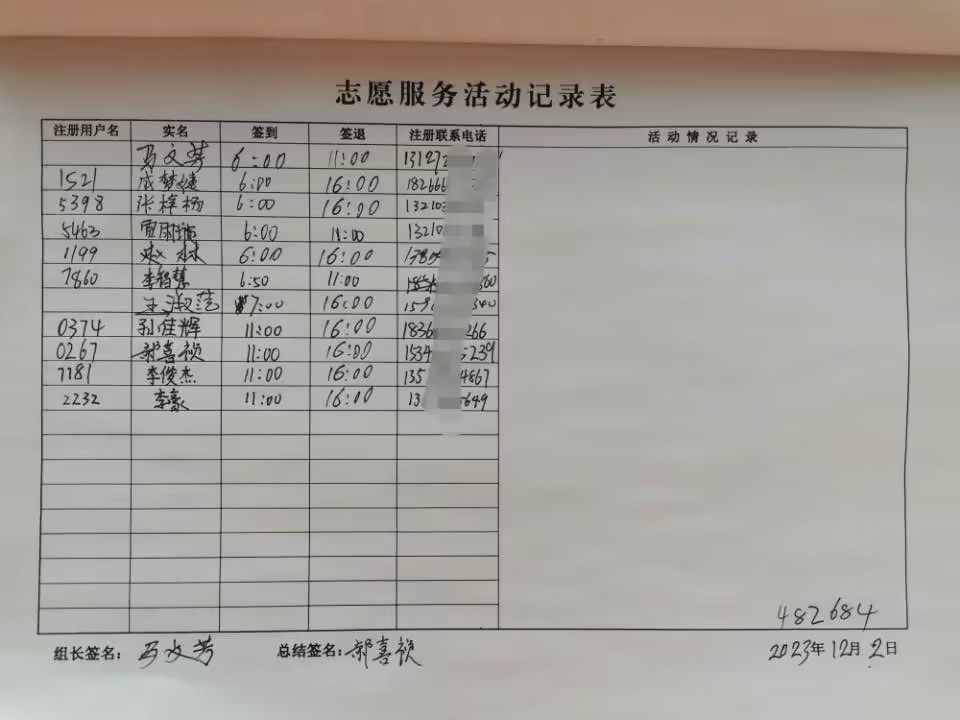 志愿服务活动记录表
注册用户名 实名 签到 签退 注册联系电话 活动情况记录
马文芳 6:00 11:00 13127
1521 成梦婕 6:00 16:00 18266
5398 张梓杨 6:00 16:00 13210
5463 6:00 11:00 13210
1199 赵林 6:00 16:00
7860 6:50 11:00
王淑莲 7:00 16:00 340
0374 孙佳辉 11:00 16:00 1836 266
0267 郝喜祯 11:00 16:00 1534 5239
7181 李俊杰 11:00 16:00 135 4867
2232 李豪 11:00 16:00 13 5649
482684
组长签名: 马文芳 总结签名: 郝喜祯 2023年12月2日